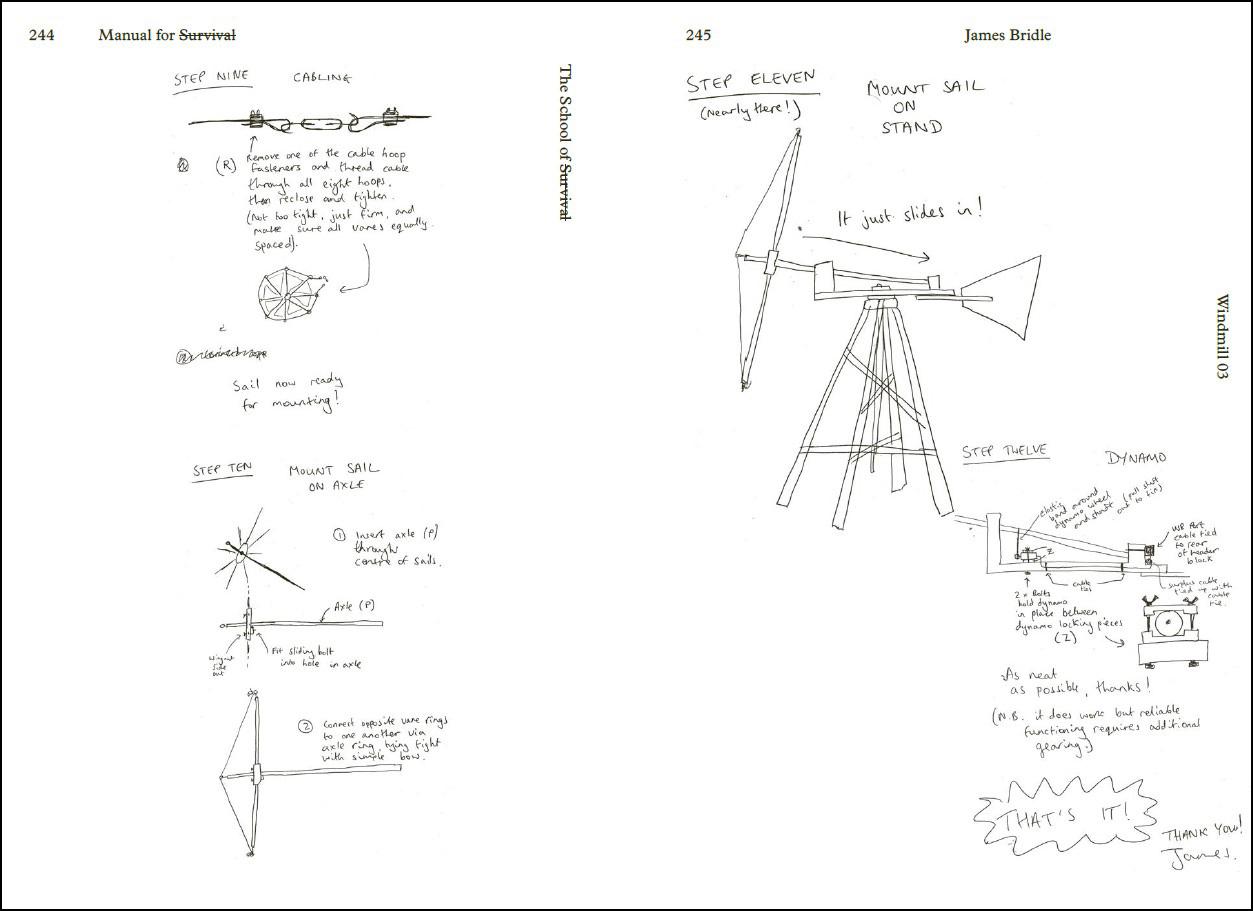 244
Manual for Survival
The School of Survival
STEP NINE CABLING
(R) Remove one of the cable hoop
fasteners and thread cable
through all eight hoops,
then reclose and tighten.
(Not too tight, just firm, and
make sure all vanes equally
spaced).
Sail now ready
for mounting!
STEP TEN MOUNT SAIL
ON AXLE
① Insert axle (P)
through
centre of sails.
Axle (P)
Wingnut
side
out
Fit sliding bolt
into hole in axle
② Connect opposite vane rings
to one another via
axle ring, tying tight
with simple bow.
245
James Bridle
Windmill 03
STEP ELEVEN
(Nearly there!)
MOUNT SAIL
ON
STAND
It just slides in!
STEP TWELVE
DYNAMO
elastic
band around
dynamo wheel
and shaft (pull shaft
out to fix)
Z
USB Port
cable tied
to rear
of header
block
cable
ties
surplus cable
tied up with
cable
tie.
2 x Bolts
hold dynamo
in place between
dynamo locking pieces
(Z)
As neat
as possible, thanks!
(N.B. it does work but reliable
functioning requires additional
gearing.)
THAT'S IT!
THANK YOU!
James.